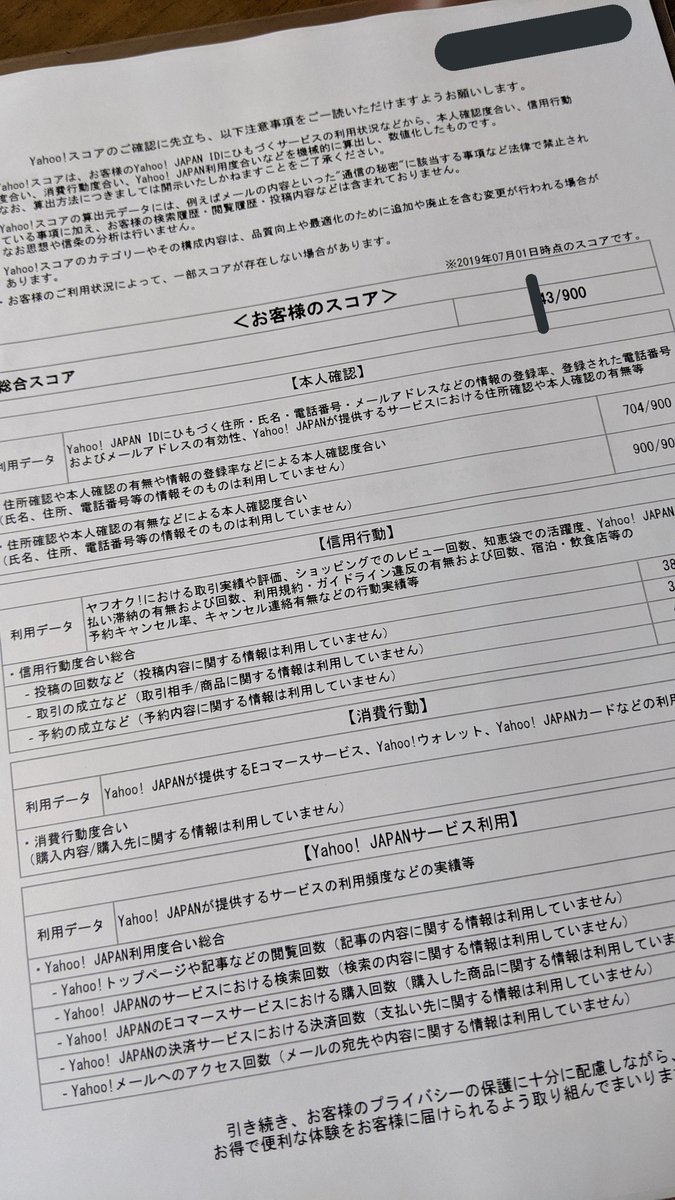 Yahoo!スコアのご確認に先立ち、以下注意事項をご一読いただけますようお願いします。
Yahoo!スコアは、お客様のYahoo! JAPAN IDにひもづくサービスの利用状況などから、本人確認度合い、信用行動
度合い、消費行動度合い、Yahoo! JAPAN利用度合いなどを機械的に算出し、数値化したものです。
なお、算出方法につきましては開示いたしかねますことをご了承ください。
Yahoo!スコアの算出元データには、例えばメールの内容といった"通信の秘密"に該当する事項など法律で禁止され
ている事項に加え、お客様の検索履歴・閲覧履歴・投稿内容などは含まれておりません。
なお思想や信条の分析は行いません。
Yahoo!スコアのカテゴリーやその構成内容は、品質向上や最適化のために追加や廃止を含む変更が行われる場合が
あります。
・お客様のご利用状況によって、一部スコアが存在しない場合があります。
※2019年07月01日時点のスコアです。
＜お客様のスコア＞
総合スコア
43/900
【本人確認】
利用データ
Yahoo! JAPAN IDにひもづく住所・氏名・電話番号・メールアドレスなどの情報の登録率、登録された電話番号
およびメールアドレスの有効性、Yahoo! JAPANが提供するサービスにおける住所確認や本人確認の有無等
・住所確認や本人確認の有無や情報の登録率などによる本人確認度合い
（氏名、住所、電話番号等の情報そのものは利用していません）
704/900
・住所確認や本人確認の有無などによる本人確認度合い
（氏名、住所、電話番号等の情報そのものは利用していません）
900/90
【信用行動】
利用データ
ヤフオク!における取引実績や評価、ショッピングでのレビュー回数、知恵袋での活躍度、Yahoo! JAPAN
払い滞納の有無および回数、利用規約・ガイドライン違反の有無および回数、宿泊・飲食店等の
予約キャンセル率、キャンセル連絡有無などの行動実績等
・信用行動度合い総合
38
- 投稿の回数など（投稿内容に関する情報は利用していません）
3
- 取引の成立など（取引相手/商品に関する情報は利用していません）
- 予約の成立など（予約内容に関する情報は利用していません）
【消費行動】
利用データ
Yahoo! JAPANが提供するEコマースサービス、Yahoo!ウォレット、Yahoo! JAPANカードなどの利用
・消費行動度合い
（購入内容/購入先に関する情報は利用していません）
【Yahoo! JAPANサービス利用】
利用データ
Yahoo! JAPANが提供するサービスの利用頻度などの実績等
・Yahoo! JAPAN利用度合い総合
- Yahoo!トップページや記事などの閲覧回数（記事の内容に関する情報は利用していません）
- Yahoo! JAPANのサービスにおける検索回数（検索の内容に関する情報は利用していません）
- Yahoo! JAPANのEコマースサービスにおける購入回数（購入した商品に関する情報は利用していま
- Yahoo! JAPANの決済サービスにおける決済回数（支払い先に関する情報は利用していません）
- Yahoo!メールへのアクセス回数（メールの宛先や内容に関する情報は利用していません）
引き続き、お客様のプライバシーの保護に十分に配慮しながら、
お得で便利な体験をお客様に届けられるよう取り組んでまいりま